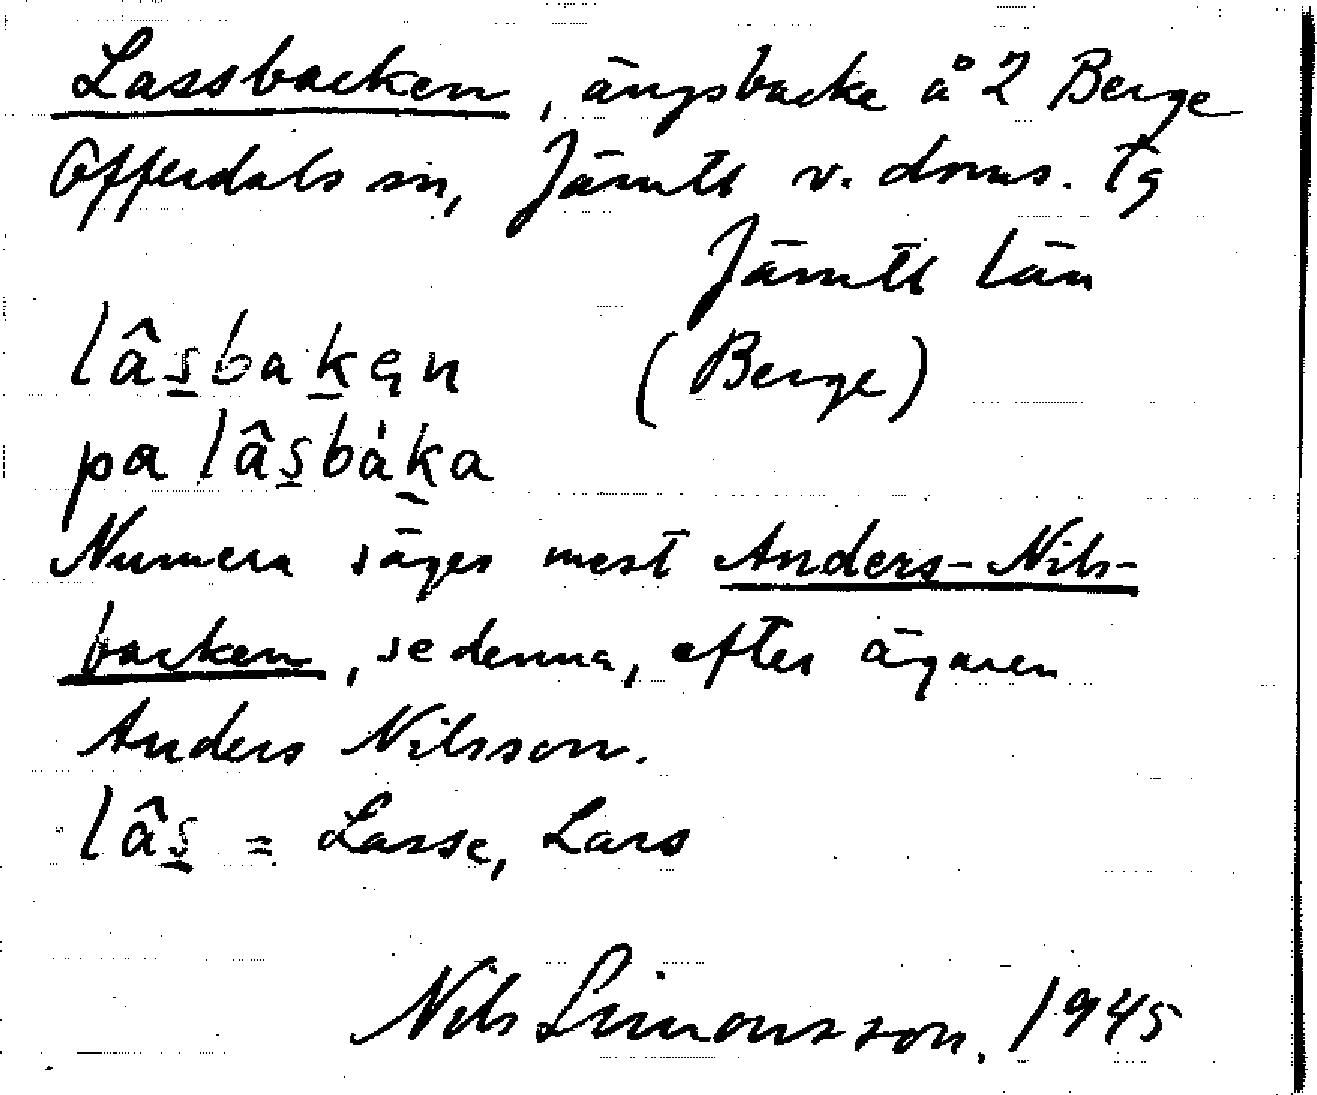 Lassbacken, ängsbacke å 2 Berge
Offerdals sn, Jämtl v. doms. tg
Jämtl län
lâs̠bak̠ęn (Berge)
pa lâs̠bàk̠a
Numera säges mest Anders-Nils-
backen, se denna, efter ägaren
Anders Nilsson.
lâs̠ = Lasse, Lars
Nils Simonsson. 1945